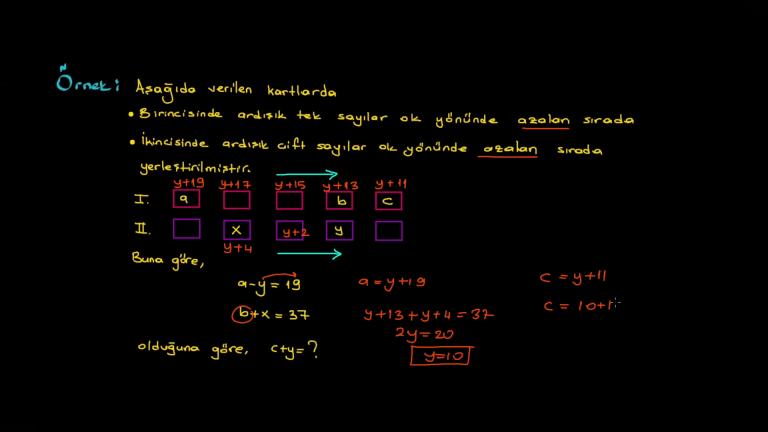 Örnek: Aşağıda verilen kartlarda
• Birincisinde ardışık tek sayılar ok yönünde azalan sırada
• İkincisinde ardışık çift sayılar ok yönünde azalan sırada
yerleştirilmiştir.
y+19 y+17 y+15 y+13 y+11
I. a b c
II. x y+2 y
y+4
Buna göre,
a-y=19 a=y+19 c=y+11
b+x=37 y+13+y+4=37 c=10+1
2y=20
olduğuna göre, c+y=? y=10